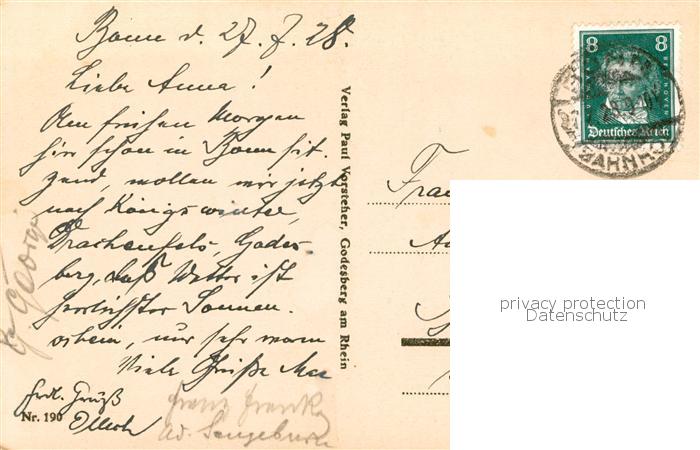 Bonn d. 27.7.28.
Liebe Anna!
Am frühen Morgen
hier schon in Bonn sit-
zend, wollen wir jetzt
nach Königswinter,
Drachenfels, Godes-
berg, das Wetter ist
herrlichster Sonnen-
schein, nur sehr warm
Viele Grüße
frdl. Gruß
Nr. 190
Georg
Franz
Verlag Paul Vorsteher, Godesberg am Rhein
8 8
Deutsches Reich
BAHNH
privacy protection
Datenschutz